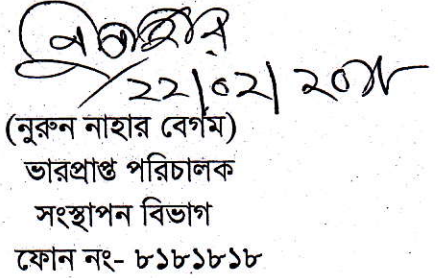 ২২|০২|২০১৮
(নুরুন নাহার বেগম)
ভারপ্রাপ্ত পরিচালক
সংস্থাপন বিভাগ
ফোন নং- ৮১৮১৮১৮